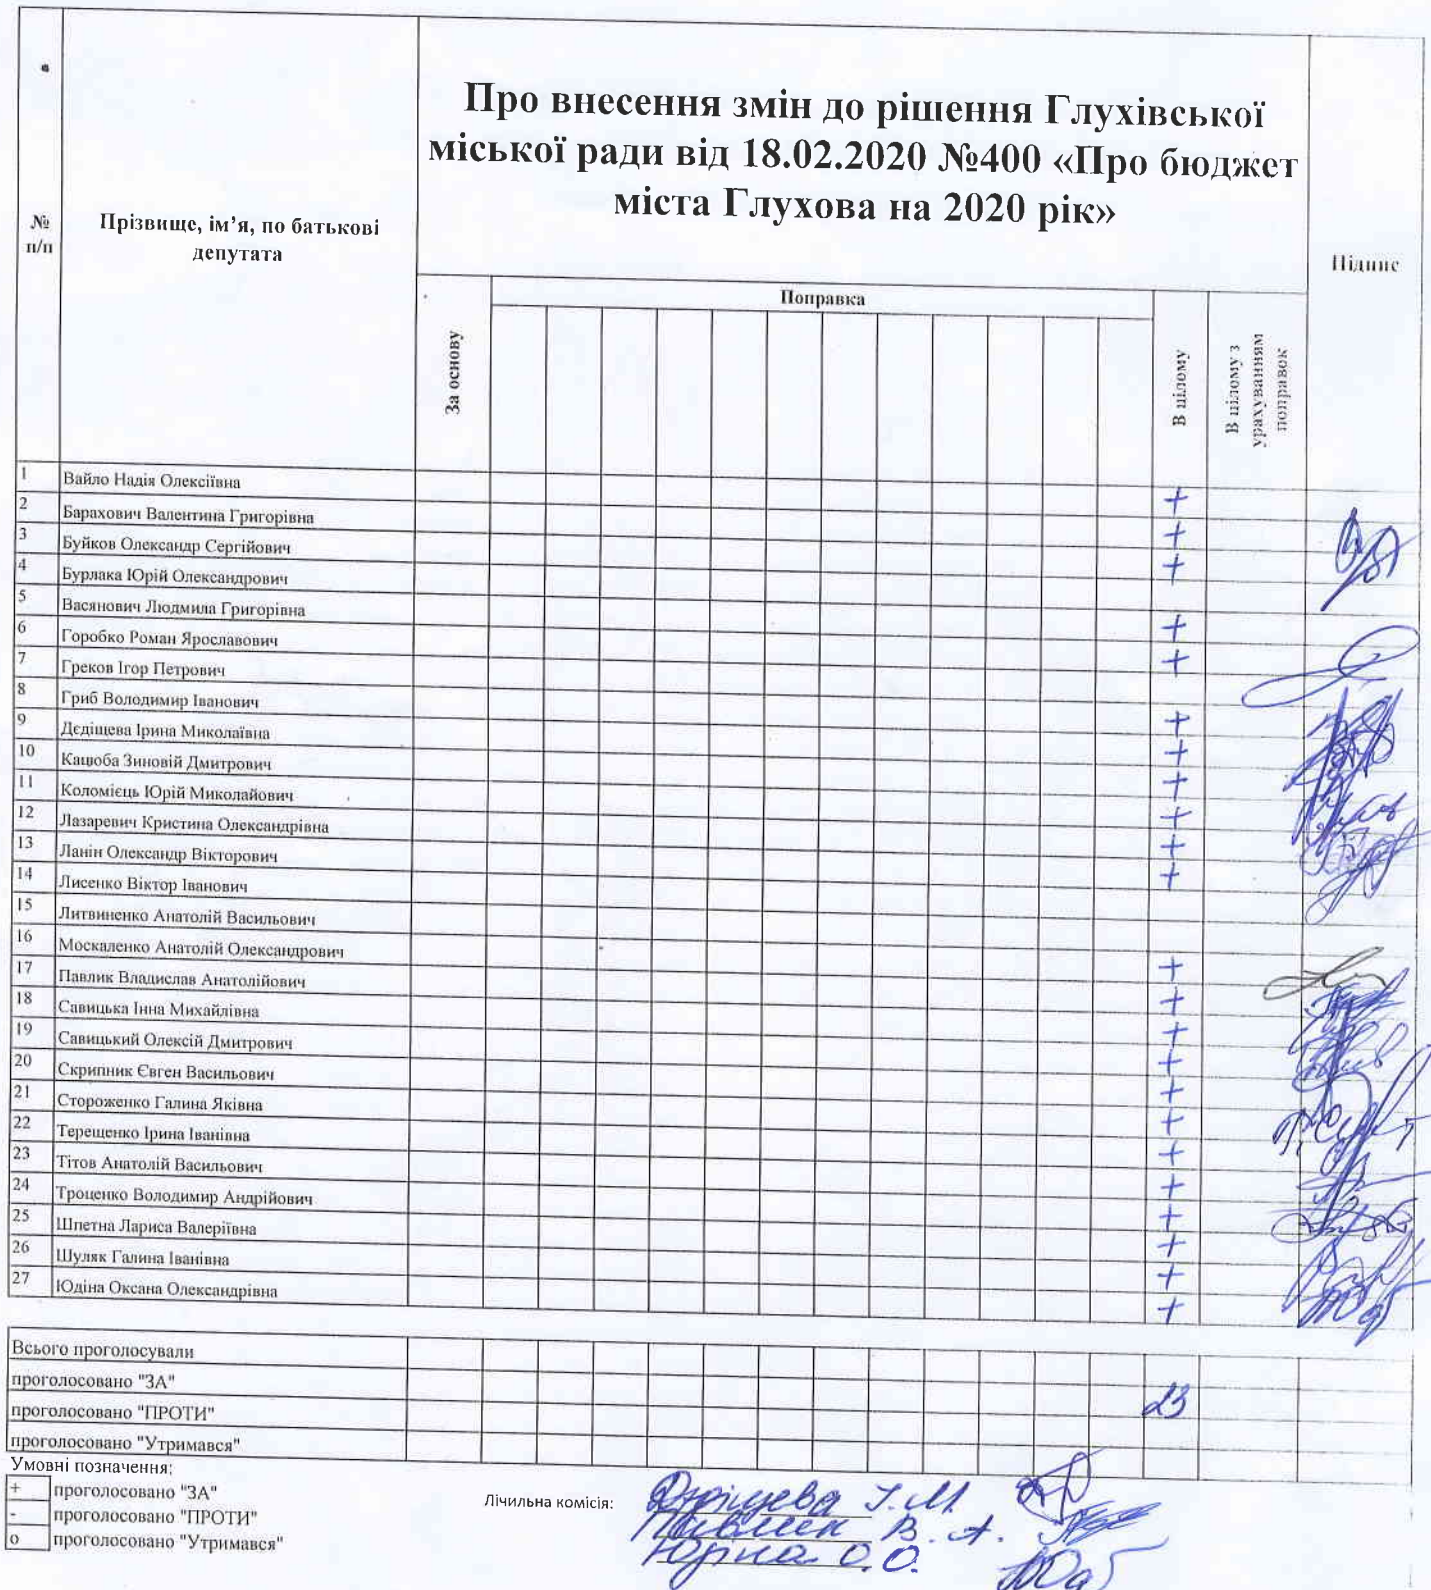 № п/п
Прізвище, ім’я, по батькові
депутата
Про внесення змін до рішення Глухівської
міської ради від 18.02.2020 №400 «Про бюджет
міста Глухова на 2020 рік»
Підпис
За основу
Поправка
В цілому
В цілому з
урахуванням
поправок
1 Вайло Надія Олексіївна +
2 Барахович Валентина Григорівна +
3 Буйков Олександр Сергійович +
4 Бурлака Юрій Олександрович
5 Васянович Людмила Григорівна +
6 Горобко Роман Ярославович +
7 Греков Ігор Петрович
8 Гриб Володимир Іванович +
9 Дєдіщева Ірина Миколаївна +
10 Кацюба Зиновій Дмитрович +
11 Коломієць Юрій Миколайович +
12 Лазаревич Кристина Олександрівна +
13 Ланін Олександр Вікторович +
14 Лисенко Віктор Іванович
15 Литвиненко Анатолій Васильович
16 Москаленко Анатолій Олександрович +
17 Павлик Владислав Анатолійович +
18 Савицька Інна Михайлівна +
19 Савицький Олексій Дмитрович +
20 Скрипник Євген Васильович +
21 Стороженко Галина Яківна +
22 Терещенко Ірина Іванівна +
23 Тітов Анатолій Васильович +
24 Троценко Володимир Андрійович +
25 Шпетна Лариса Валеріївна +
26 Шуляк Галина Іванівна +
27 Юдіна Оксана Олександрівна +
Всього проголосували
проголосовано "ЗА" 23
проголосовано "ПРОТИ"
проголосовано "Утримався"
Умовні позначення:
+ проголосовано "ЗА"
- проголосовано "ПРОТИ"
о проголосовано "Утримався"
Лічильна комісія: Дєдіщева І.М.
Павлик В.А.
Юдіна О.О.